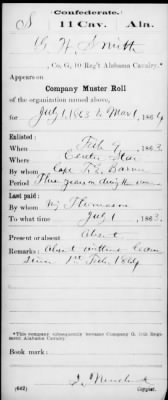 Confederate.
S 11 Cav. Ala.
G H Smith
Co. G, 10 Reg't Alabama Cavalry.*
Appears on
Company Muster Roll
of the organization named above,
for July 1, 1863 to Mar 1, 1864
Enlisted:
When Feb 9, 1863.
Where Center Star
By whom Capt T. E. Barr
Period Three years or during the war
Last paid:
By whom Maj Thomason
To what time July 1, 1863.
Present or absent Absent
Remarks: Absent without leave
since 1st Feb. 1864
*This company subsequently became Company G, 11th Regiment Alabama Cavalry.
Book mark:
(642) Copyist.